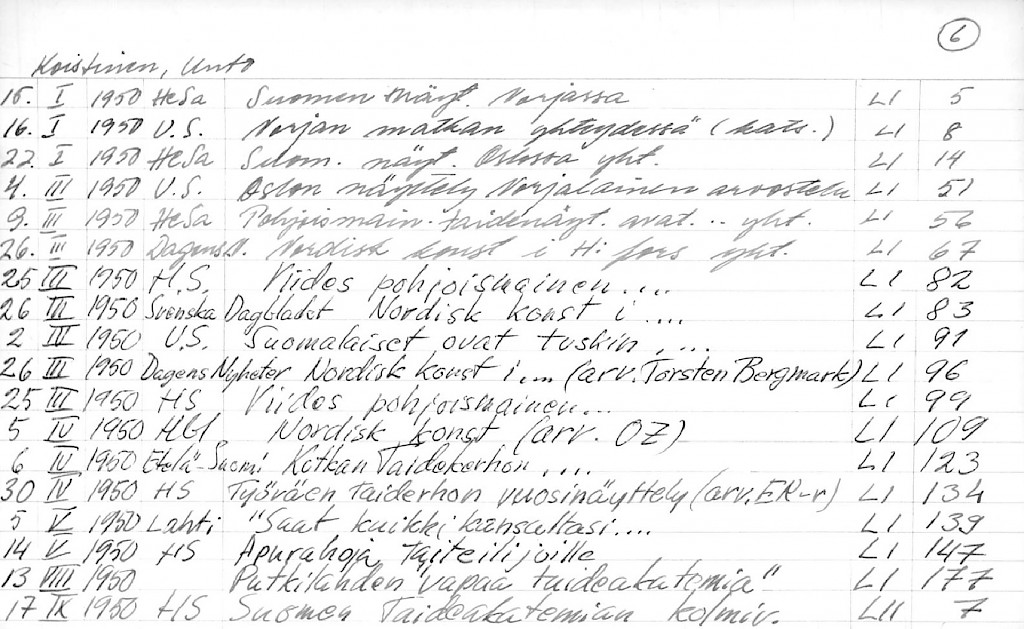 6
Koistinen, Unto
15. I 1950 HeSa Suomen näyt. Norjassa LI 5
16. I 1950 U.S. Norjan matkan yhteydessä (kats.) LI 8
22. I 1950 HeSa Suom. näyt. Oslossa yht. LI 14
4. III 1950 U.S. Oslon näyttely Norjalainen arvostelu LI 51
9. III 1950 HeSa Pohjoismain. taidenäyt. avat... yht. LI 56
26. III 1950 Dagens N. Nordisk konst i H:fors yht. LI 67
25 III 1950 H.S. Viides pohjoismainen.... LI 82
26 III 1950 Svenska Dagbladet Nordisk konst i .... LI 83
2 IV 1950 U.S. Suomalaiset ovat tuskin .... LI 91
26 III 1950 Dagens Nyheter Nordisk konst i.... (arv. Torsten Bergmark) LI 96
25 III 1950 HS Viides pohjoismainen... LI 99
5 IV 1950 Hbl Nordisk konst (arv. OZ) LI 109
6 IV 1950 Etelä-Suomi Kotkan Taidekerhon .... LI 123
30 IV 1950 HS Työväen taiderhon vuosinäyttely (arv. ER-r) LI 134
5 V 1950 Lahti "Saat kaikki kansaltasi.... LI 139
14 V 1950 HS Apurahoja taiteilijoille LI 147
13 VIII 1950 Putkilahden "vapaa taideakatemia" LI 177
17 IX 1950 HS Suomen Taideakatemian kolmiv. LII 7